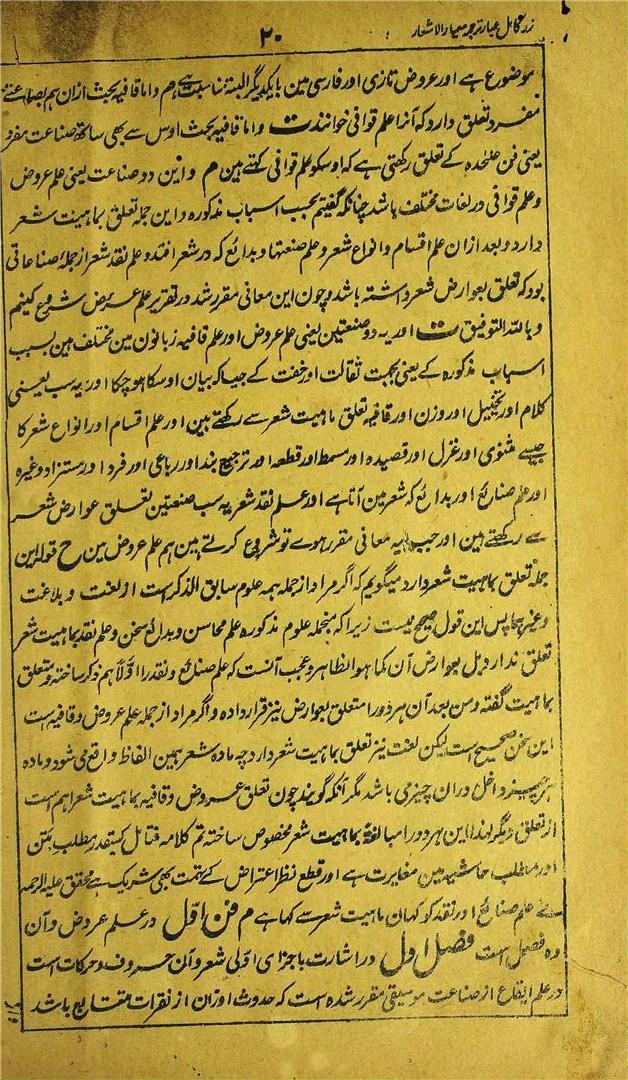 زر کامل عیار ترجمہ معیار الاشعار
۲۰
موضوع ہے اور عروض تازی اور فارسی مین بایکدیگر البتہ تناسبت ہے م و اما قافیہ بحث ازان ہم بصناعتے
مفرد تعلق دارد کہ آنرا علم قوافی خوانند ت واما قافیہ بحث اوس سے بھی ساتھ صناعت مفرد
یعنی فن علٰحدہ کے تعلق رکھتی ہے کہ اوسکو علم قوافی کہتے ہین م و این دو صناعت یعنی علم عروض
و علم قوافی در لغات مختلف باشد چنانکہ گفتیم بحسب اسباب مذکورہ و این جملہ تعلق بماہیت شعر
دارد و بعد ازان علم اقسام و انواع شعر و علم صنعتہا و بدائع کہ در شعر افتد و علم نقد شعر از جملہ صناعاتی
بود کہ تعلق بعوارض شعر داشتہ باشد و چون این معانی مقرر شد در تقریر علم عروض شروع کنیم
و باللہ التوفیق ت اور یہ دو صنعتین یعنی علم عروض اور علم قافیہ زبانون مین مختلف ہین بسبب
اسباب مذکورہ کے یعنی بجہت ثقالت اور خفت کے جیسا کہ بیان اوسکا ہو چکا اور یہ سب یعنی
کلام اور تخییل اور وزن اور قافیہ تعلق ماہیت شعر سے رکھتے ہین اور علم اقسام اور انواع شعر کا
جیسے مثنوی اور غزل اور قصیدہ اور مسمط اور قطعہ اور ترجیع بند اور رباعی اور فرد اور مستزاد وغیرہ
اور علم صنائع اور بدائع کہ شعر مین آتا ہے اور علم نقد شعر یہ سب صنعتین تعلق عوارض شعر
سے رکھتے ہین اور جب یہ معانی مقرر ہوے تو شروع کرتے ہین ہم علم عروض مین ح قولہ این
جملہ تعلق بماہیت شعر دارد میگویم کہ اگر مراد از جملہ ہمہ علوم سابق الذکر است از لغت و بلاغت
و غیرہما پس این قول صحیح نیست زیرا کہ منجملہ علوم مذکورہ علم محاسن و بدائع سخن و علم نقد بماہیت شعر
تعلق ندارد بل بعوارض آن کما ہو الظاہر و عجب آنست کہ علم صنائع و نقد را اولاً ہم ذکر ساختہ و متعلق
بماہیت گفتہ و من بعد آن ہر دو را متعلق بعوارض نیز قرار دادہ و اگر مراد از جملہ علم عروض و قافیہ است
این سخن صحیح است لیکن لغت نیز تعلق بماہیت شعر دارد چہ مادہ شعر ہمین الفاظ واقع می شود و مادہ
ہر چیز داخل دران چیز می باشد مگر آنکہ گویند چون تعلق عروض و قافیہ بماہیت شعر اہم است
از تعلق دیگر لہذا این ہر دو را مبالغۃً بماہیت شعر مخصوص ساختہ تم کلامہ فتامل کیقدر مطلب متن
اور مطلب حاشیہ مین مغایرت ہے اور قطع نظر اعتراض کے تہمت بھی شریک ہے محقق علیہ الرحمہ
نے علم صنائع اور نقد کو کہان ماہیت شعر سے کہا ہے م فن اول در علم عروض و آن
دہ فصل است فصل اول در اشارت باجزای اولی شعر و آن حروف و حرکات است
در علم ایقاع از صناعت موسیقی مقرر شدہ است کہ حدوث اوزان از نقرات متتابع باشد